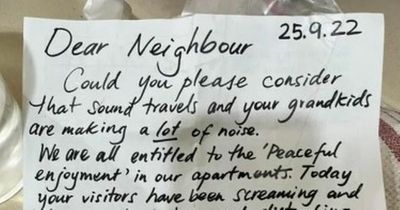 25.9.22
Dear Neighbour
Could you please consider
that sound travels and your grandkids
are making a lot of noise.
We are all entitled to the 'Peaceful
enjoyment' in our apartments. Today
your visitors have been screaming and